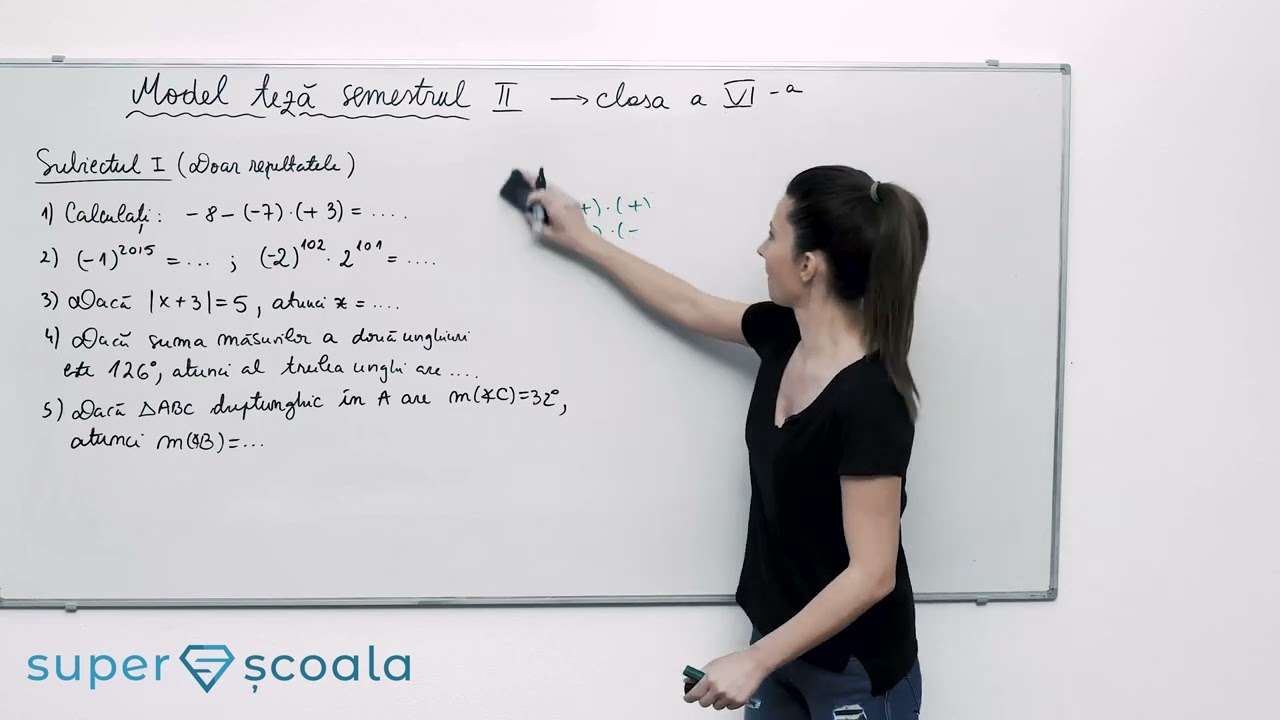 Model teză semestrul II → clasa a VI-a
Subiectul I (Doar rezultatele)
1) Calculați: -8-(-7)·(+3)=....
+)·(+)
)·(-
2) (-1)^2015 = ... ; (-2)^102 · 2^101 = ....
3) Dacă |x+3|=5, atunci x = ....
4) Dacă suma măsurilor a două unghiuri
este 126°, atunci al treilea unghi are ....
5) Dacă △ABC dreptunghic în A are m(∢C)=32°,
atunci m(∢B)=...
super școala